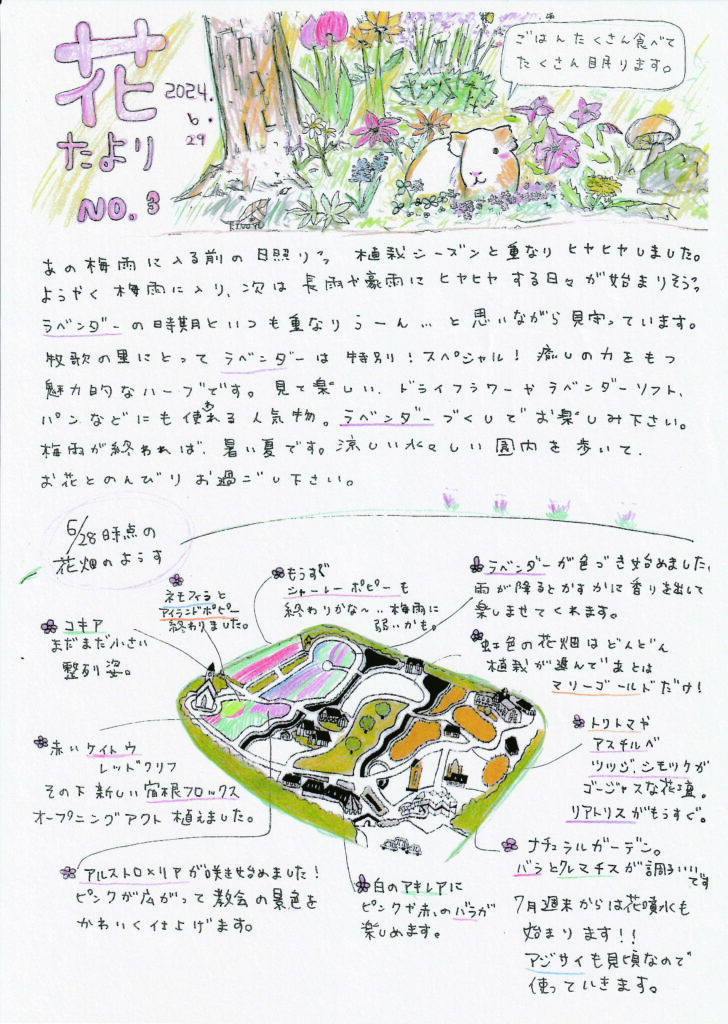 花
たより
NO.3
2024.
6.
29
ごはんたくさん食べて
たくさん眠ります。
あの梅雨に入る前の日照りっっ 植栽シーズンと重なり ヒヤヒヤしました。
ようやく梅雨に入り、次は長雨や豪雨にヒヤヒヤする日々が始まりそうっっ
ラベンダーの時期といつも重なりうーん…と思いながら見守っています。
牧歌の里にとってラベンダーは特別！スペシャル！癒しの力をもつ
魅力的なハーブです。見て楽しい、ドライフラワーやラベンダーソフト、
パンなどにも使われる人気物。ラベンダーづくしでお楽しみ下さい。
梅雨が終われば、暑い夏です。涼しい水々しい園内を歩いて、
お花とのんびりお過ごし下さい。
6/28時点の
花畑のようす
もうすぐ
シャーレーポピーも
終わりかな〜..梅雨に
弱いかも。
ネモフィラと
アイランドポピー
終わりました。
コキア
まだまだ小さい
整列姿。
赤いケイトウ
レッドクリフ
その下新しい宿根フロックス
オープニングアクト植えました。
アルストロメリアが咲き始めました！
ピンクが広がって教会の景色を
かわいく仕上げます。
白のアキレアに
ピンクや赤のバラが
楽しめます。
ラベンダーが色づき始めました。
雨が降るとかすかに香りを出して
楽しませてくれます。
虹色の花畑はどんどん
植栽が進んであとは
マリーゴールドだけ！
トリトマや
アスチルベ
ツツジ、シモツケが
ゴージャスな花壇。
リアトリスがもうすぐ。
ナチュラルガーデン。
バラとクレマチスが調子いい
です
7月週末からは花噴水も
始まります!!
アジサイも見頃なので
使っていきます。